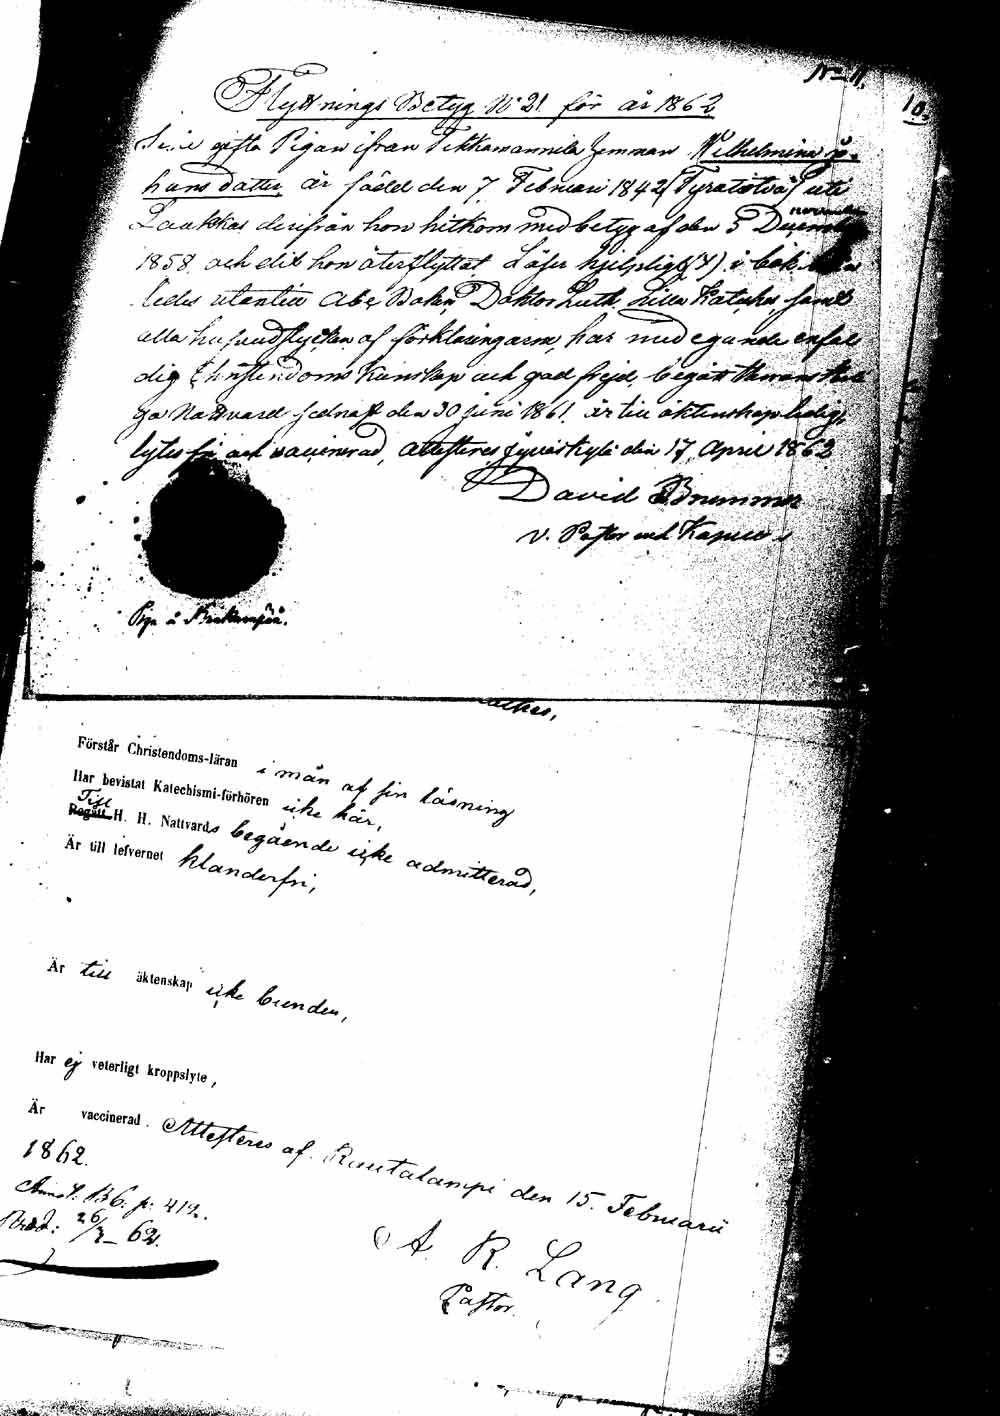 No 11.
10.
Flyttnings Betyg No 21 för år 1862
gifta Pigan ifrån Tikkamannila hemman Wilhelmina Jo-
hans dotter, är född den 7 Februari 1842 uti
Laukkas derifrån hon hitkom med betyg af den 5 november
1858 och dit hon återflyttat. Läser hjelpligt i bok
ledes utantill Abc Boken, Doktor Luth. lilla Kateches samt
alla hufvudstycken af förklaringarne, har med egande enfal
dig Christendoms Kunskap och god frejd, begått Herrans Heli
ga Nattvard sednast den 30 juni 1861. är till äktenskap ledig,
lytes fri och vaccinerad, attesteres Jyväskylä den 17 April 1862
David Brummer
v. Pastor och Kapell.
Piga å
Förstår Christendoms-läran i mån af sin läsning
Har bevistat Katechismi-förhören icke här,
Till
Begått H. H. Nattvards begående icke admitterad,
Är till lefvernet klanderfri,
Är till äktenskap icke bunden,
Har ej veterligt kroppslyte,
Är vaccinerad. Attesteres af. Rautalampi den 15. Februarii
1862.
Annot: B6: p: 412.
26/3 62.
A. R. Lang
Pastor.